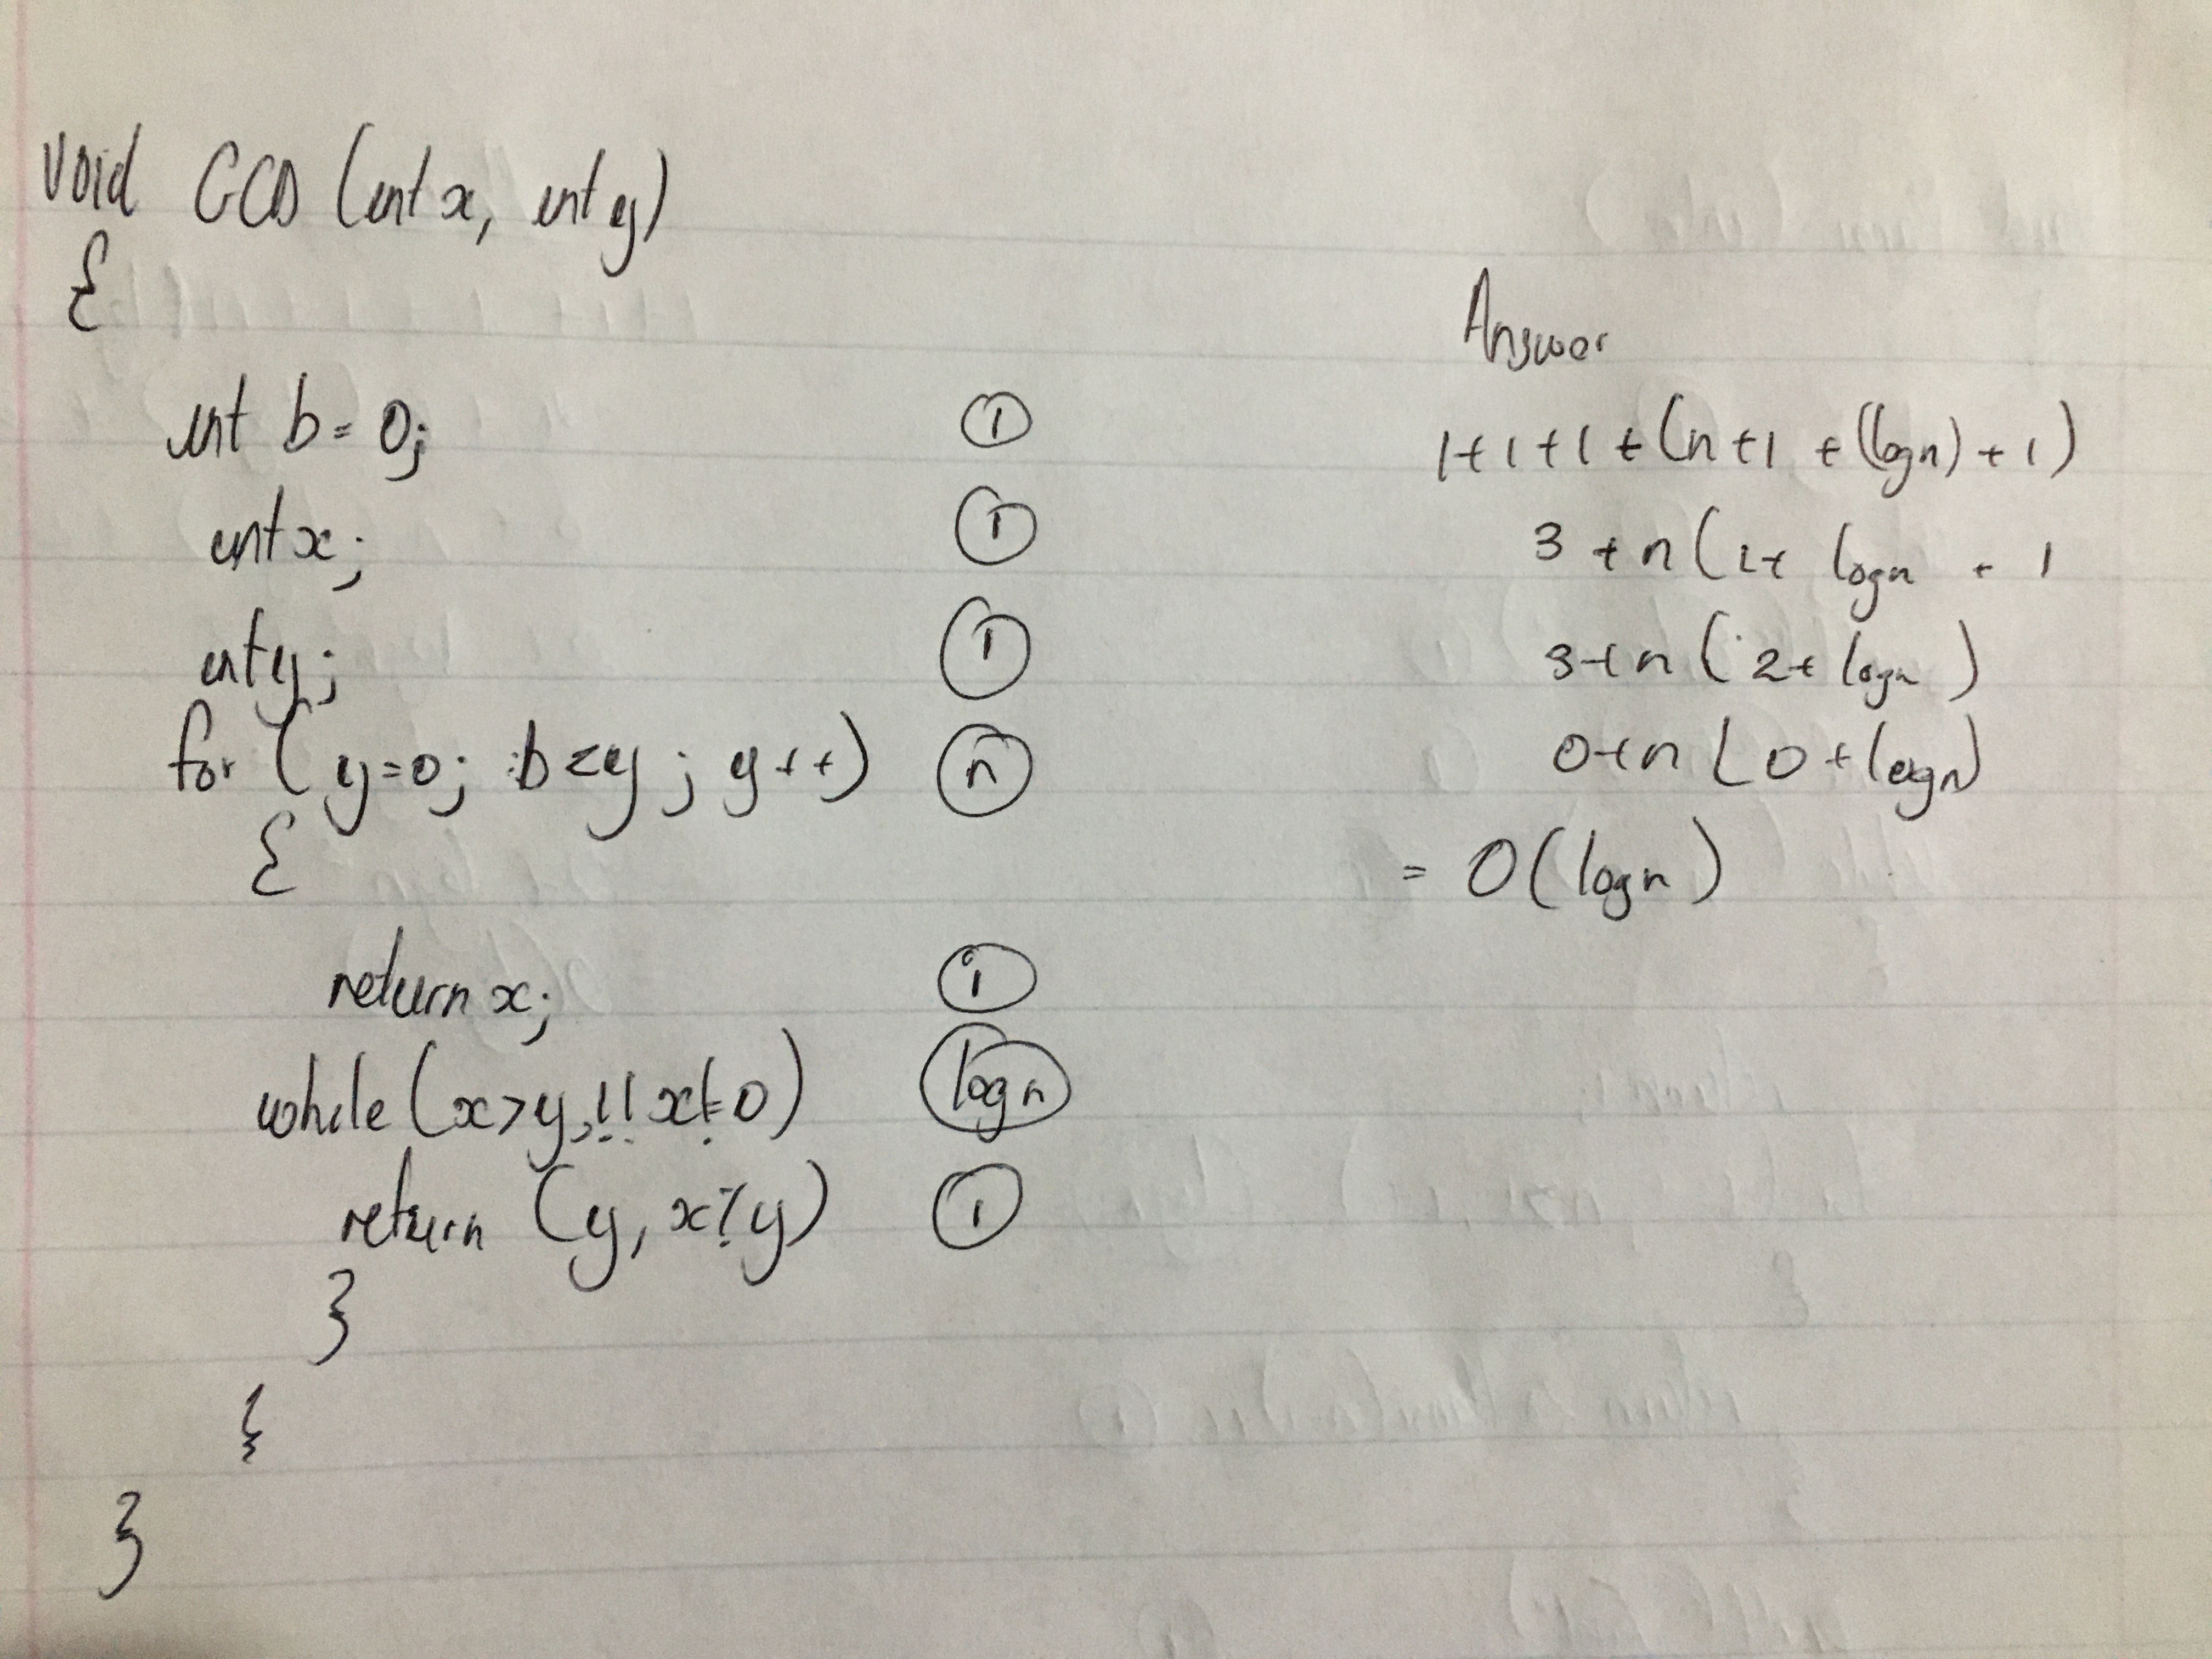 void GCD (int x, int y)
{
int b = 0; 1
int x; 1
int y; 1
for ( y=0; b<y; y++) n
{
return x; 1
while (x>y, !! x!=0) log n
return (y, x%y) 1
}
{
}
Answer
1+1+1+(n+1+(log n)+1)
3+n(1+ log n + 1
3+n(2+ log n)
0+n(0+log n)
= O(log n)